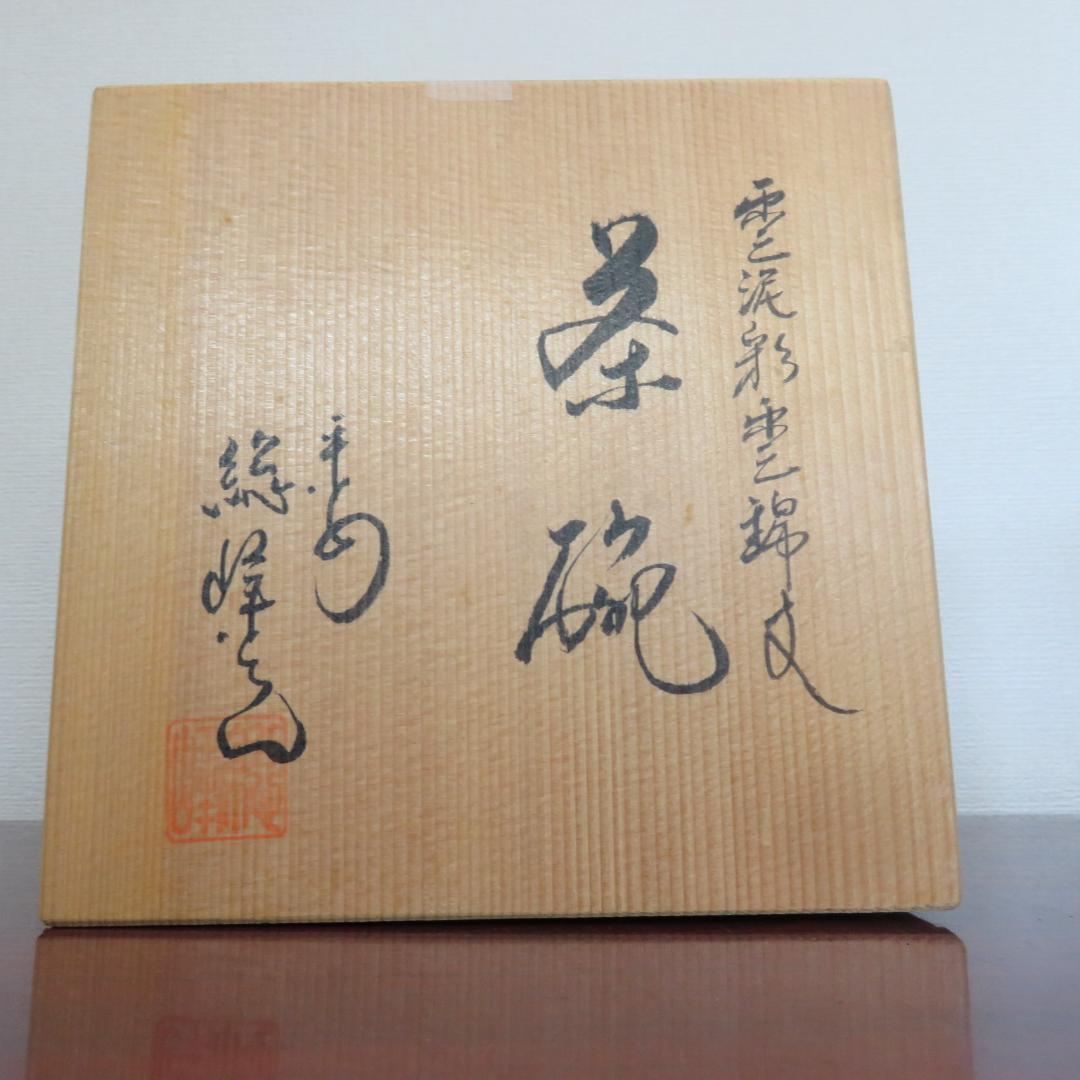 雲泥彩雲錦文
茶碗
平安
緑峰窯